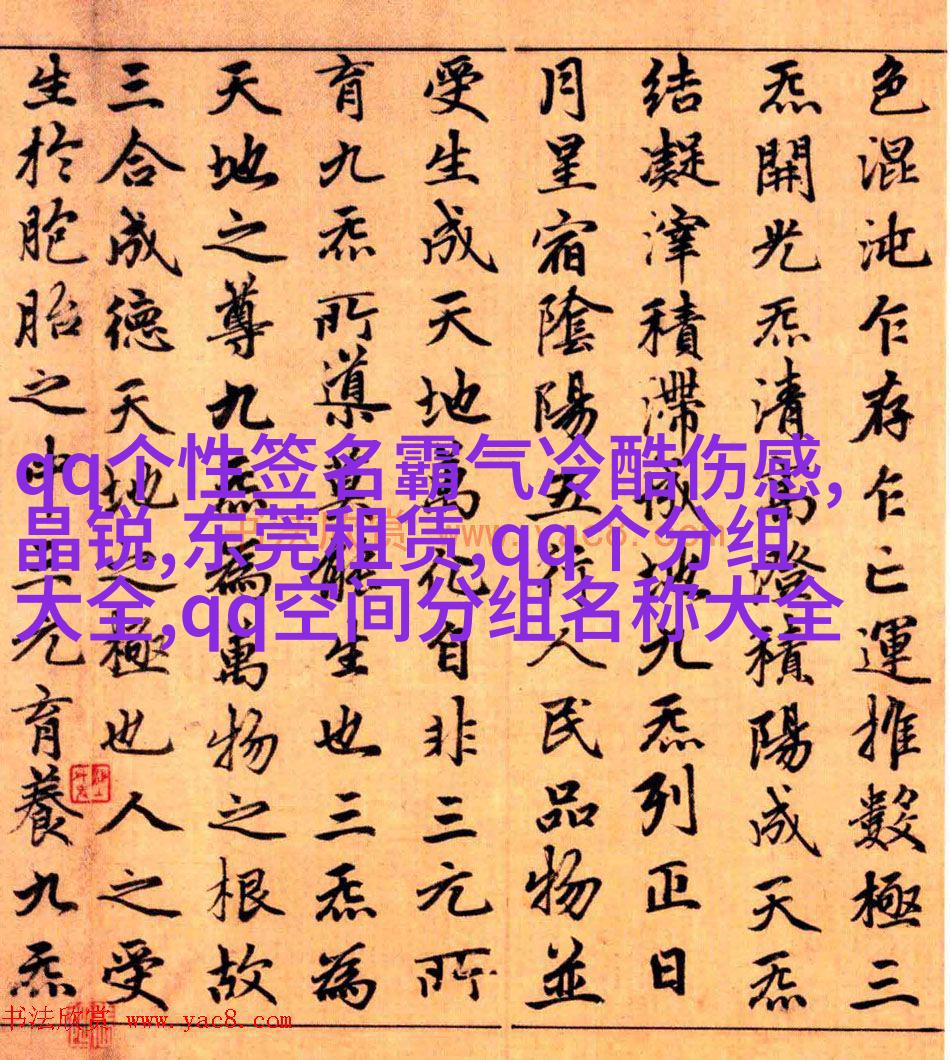 色混沌乍存乍亡運推數極三
炁開光炁清高澄積陽成天炁
結凝滓積滯成地九炁列正日
月星宿陰陽五行人民品物並
受生成天地萬化自非三元所
育九炁所導莫能生也三炁為
天地之尊九炁為萬物之根故
三合成德天地之極也人之受
生於胞胎之中三元育養九炁
qq个性签名霸气冷酷伤感,
晶锐,东莞租赁,qq个分组
大全,qq空间分组名称大全
书法欣赏 www.yac8.com
书法欣赏 www.yac8.com